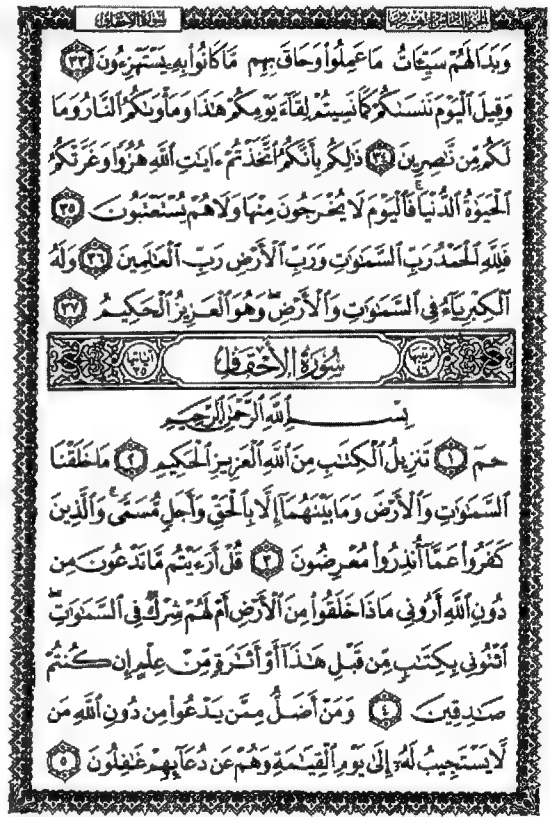 الجزء السادس والعشرون سورة الأحقاف
وَبَدَا لَهُمْ سَيِّـَٔاتُ مَا عَمِلُوا۟ وَحَاقَ بِهِم مَّا كَانُوا۟ بِهِۦ يَسْتَهْزِءُونَ ٣٣
وَقِيلَ ٱلْيَوْمَ نَنسَىٰكُمْ كَمَا نَسِيتُمْ لِقَآءَ يَوْمِكُمْ هَٰذَا وَمَأْوَىٰكُمُ ٱلنَّارُ وَمَا
لَكُم مِّن نَّٰصِرِينَ ٣٤ ذَٰلِكُم بِأَنَّكُمُ ٱتَّخَذْتُمْ ءَايَٰتِ ٱللَّهِ هُزُوًا وَغَرَّتْكُمُ
ٱلْحَيَوٰةُ ٱلدُّنْيَا ۚ فَٱلْيَوْمَ لَا يُخْرَجُونَ مِنْهَا وَلَا هُمْ يُسْتَعْتَبُونَ ٣٥
فَلِلَّهِ ٱلْحَمْدُ رَبِّ ٱلسَّمَٰوَٰتِ وَرَبِّ ٱلْأَرْضِ رَبِّ ٱلْعَٰلَمِينَ ٣٦ وَلَهُ
ٱلْكِبْرِيَآءُ فِى ٱلسَّمَٰوَٰتِ وَٱلْأَرْضِ ۖ وَهُوَ ٱلْعَزِيزُ ٱلْحَكِيمُ ٣٧
ترتيبها ٤٦ سُورَةُ الأَحْقَافِ آياتها ٣٥
بِسْمِ ٱللَّهِ ٱلرَّحْمَٰنِ ٱلرَّحِيمِ
حمٓ ١ تَنزِيلُ ٱلْكِتَٰبِ مِنَ ٱللَّهِ ٱلْعَزِيزِ ٱلْحَكِيمِ ٢ مَا خَلَقْنَا
ٱلسَّمَٰوَٰتِ وَٱلْأَرْضَ وَمَا بَيْنَهُمَآ إِلَّا بِٱلْحَقِّ وَأَجَلٍ مُّسَمًّى ۚ وَٱلَّذِينَ
كَفَرُوا۟ عَمَّآ أُنذِرُوا۟ مُعْرِضُونَ ٣ قُلْ أَرَءَيْتُم مَّا تَدْعُونَ مِن
دُونِ ٱللَّهِ أَرُونِى مَاذَا خَلَقُوا۟ مِنَ ٱلْأَرْضِ أَمْ لَهُمْ شِرْكٌ فِى ٱلسَّمَٰوَٰتِ ۖ
ٱئْتُونِى بِكِتَٰبٍ مِّن قَبْلِ هَٰذَآ أَوْ أَثَٰرَةٍ مِّنْ عِلْمٍ إِن كُنتُمْ
صَٰدِقِينَ ٤ وَمَنْ أَضَلُّ مِمَّن يَدْعُوا۟ مِن دُونِ ٱللَّهِ مَن
لَّا يَسْتَجِيبُ لَهُۥٓ إِلَىٰ يَوْمِ ٱلْقِيَٰمَةِ وَهُمْ عَن دُعَآئِهِمْ غَٰفِلُونَ ٥